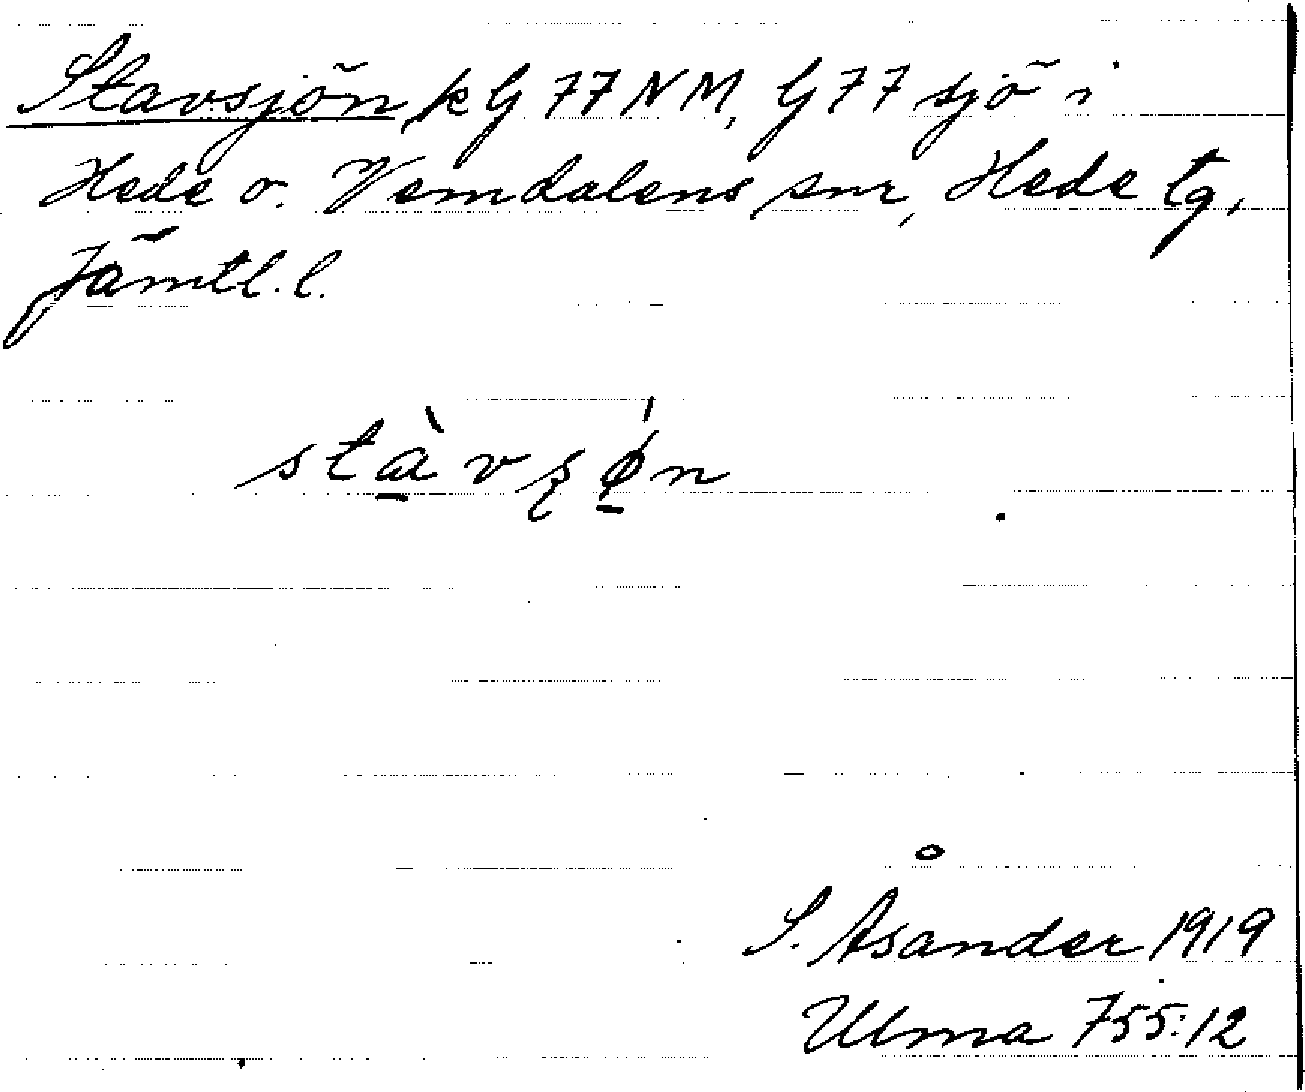 Stavsjön kG 77 NM, G 77 sjö i
Hede o. Vemdalens snr, Hede tg,
Jämtl. l.
stàvʂǿn
S. Åsander 1919
Ulma 755:12